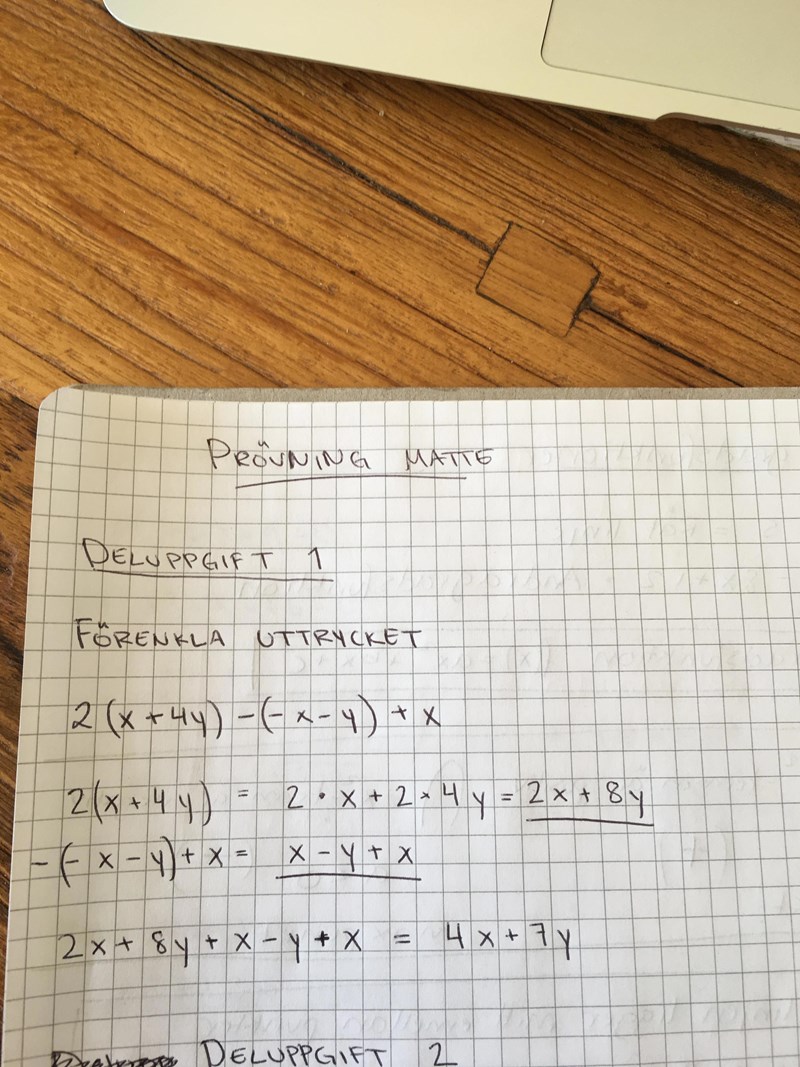 PRÖVNING MATTE
DELUPPGIFT 1
FÖRENKLA UTTRYCKET
2(x+4y) -(-x-y) + x
2(x+4y) = 2·x+2·4y = 2x+8y
-(-x-y)+x = x-y+x
2x+8y+x-y+x = 4x+7y
DELUPPGIFT 2